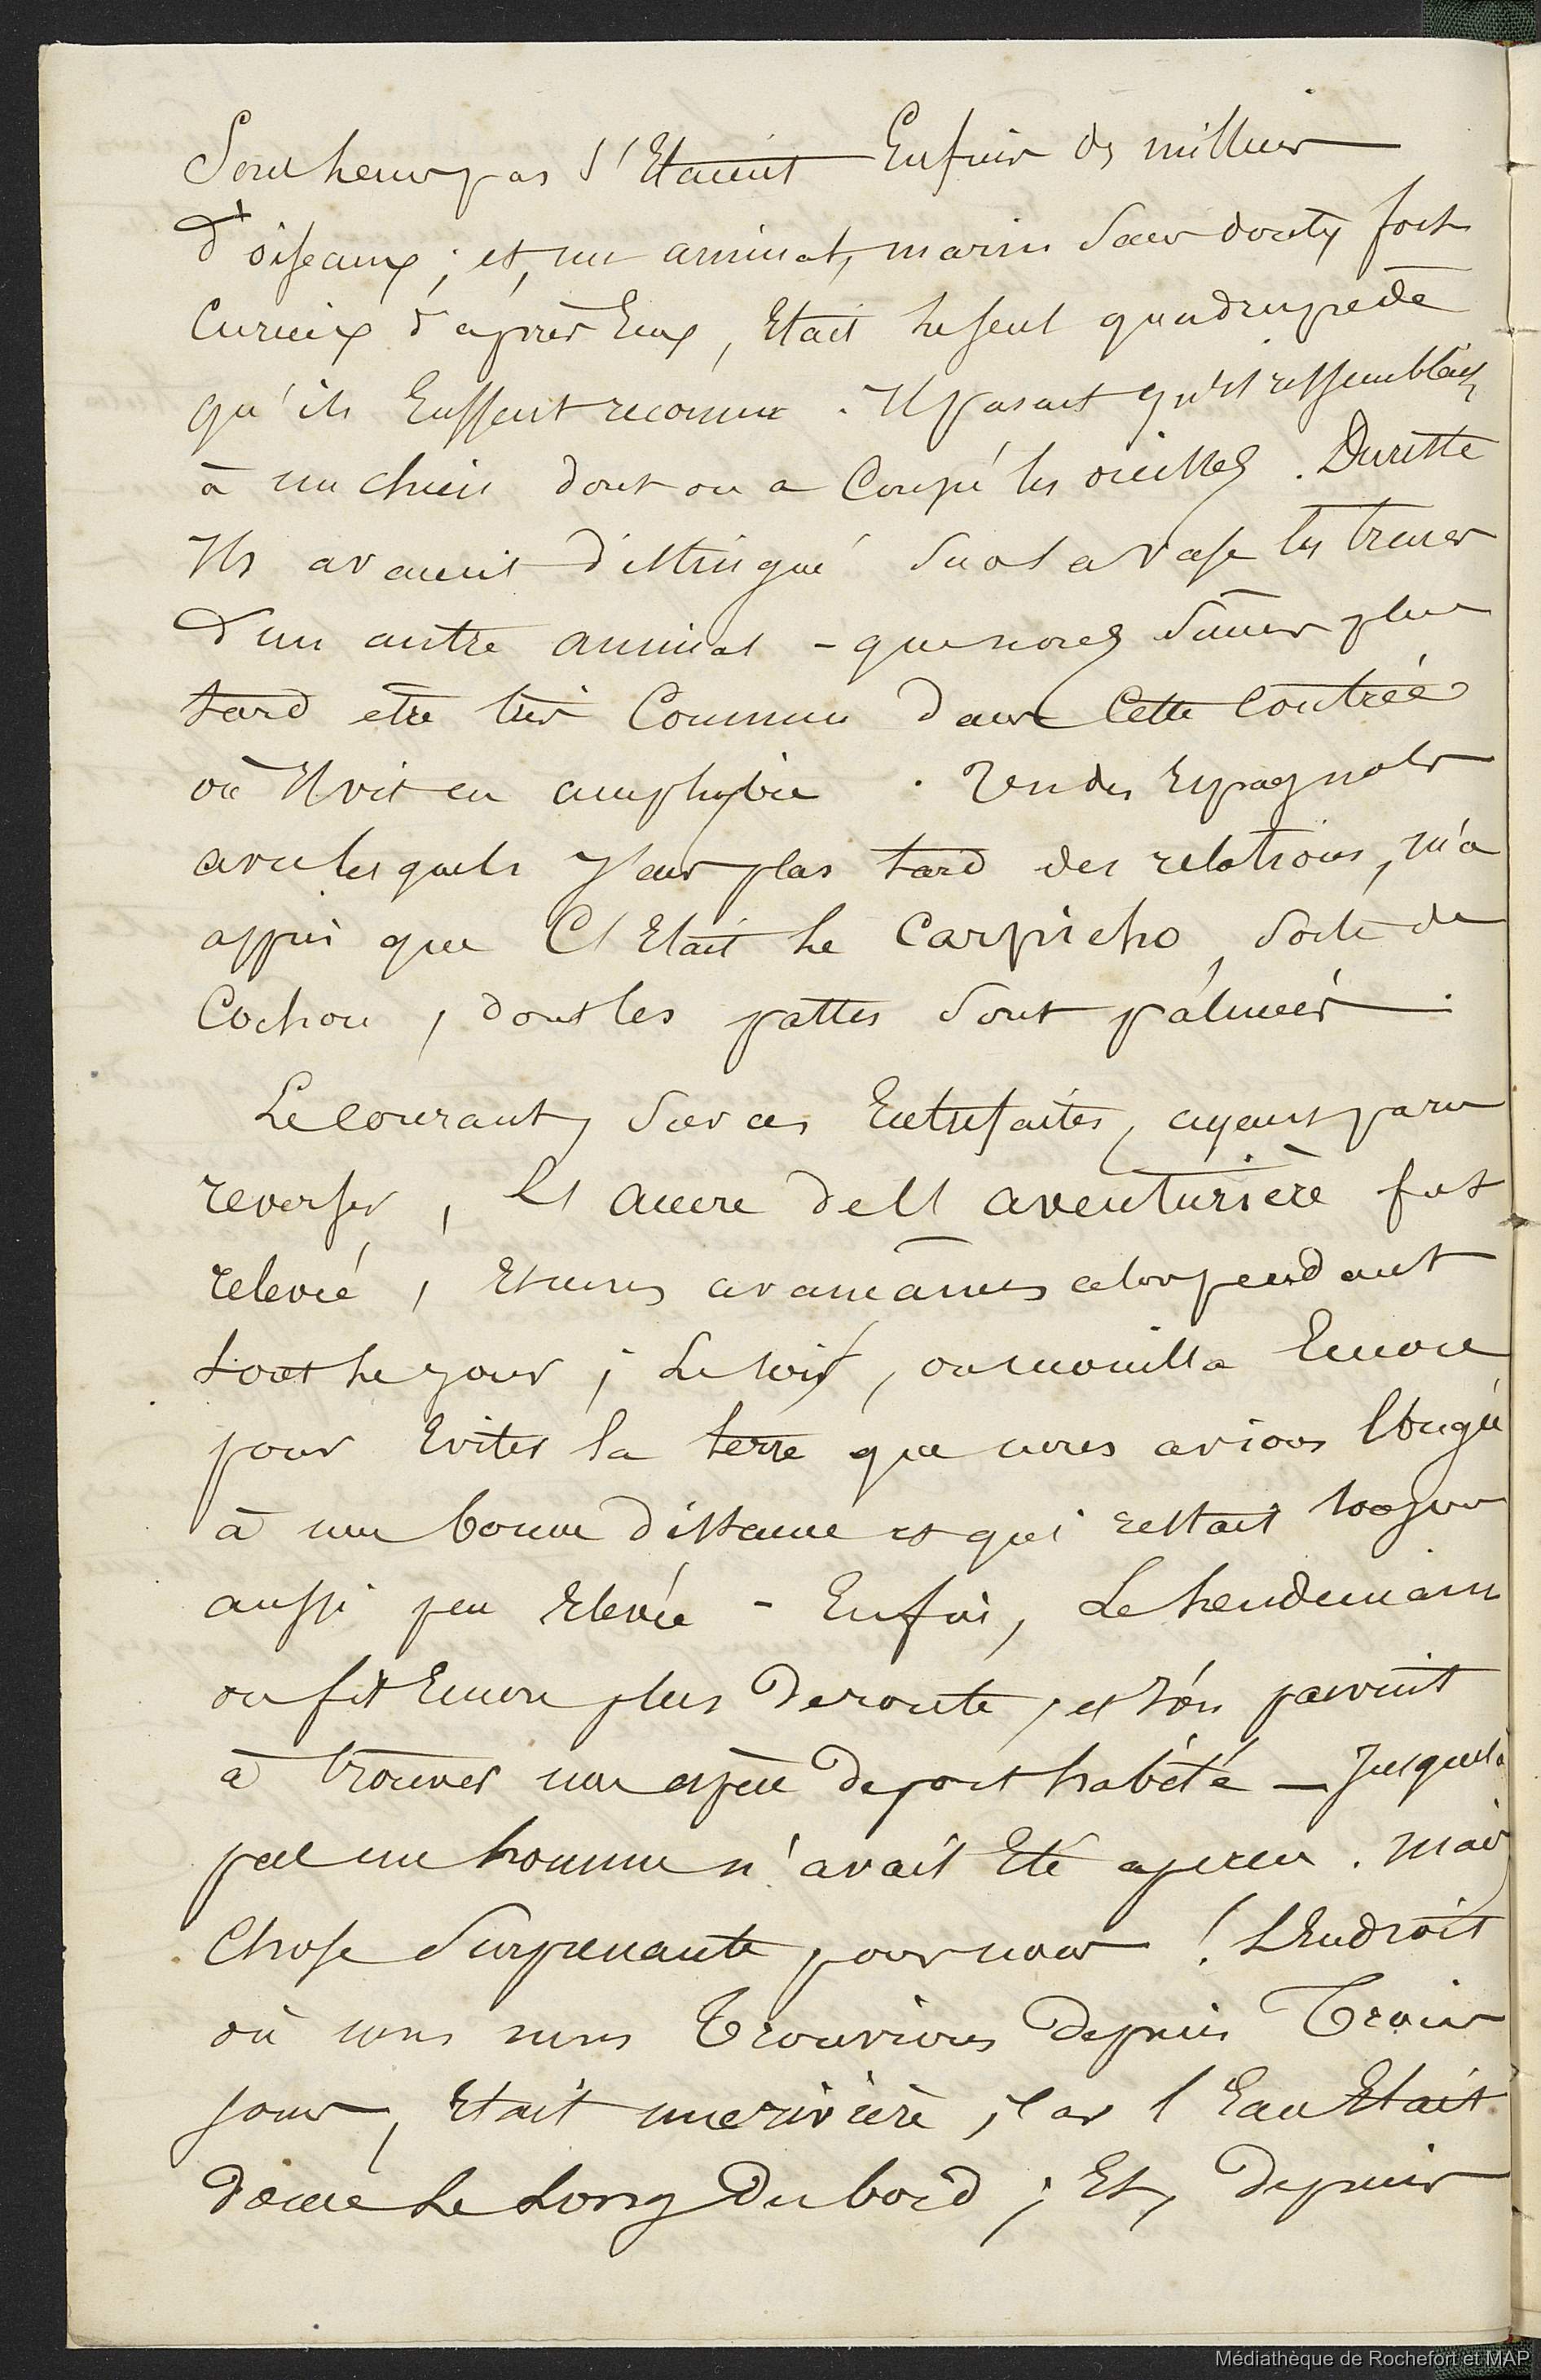 Sous leurs pas s'Etaient Enfuis des milliers
d'oiseaux ; et, un animal, marin sans doute, fort
Curieux d'après Eux, Etait le seul quadrupède
qu'ils Eussent reconnu . Il parait qu'il ressemblait
à un chien dont on a Coupé les oreilles . De suite
Ils avaient distingué sur la vase les traces
d'un autre animal - que nous sûmes plus
tard etre très Commun dans Cette Contrée
où Il vit en amphybie . L'un des Espagnols
avec lesquels J'eus plus tard des relations, m'a
appris que C'Etait le Carpicho, sorte de
Cochon, dont les pattes sont palmées .
Le Courant, sur ces Entrefaites, ayant paru
reverser, l'ancre de l'aventurière fut
relevée, Et nous avançâmes alors pendant
tout le jour ; Le soir, on mouilla Encore
pour Eviter la terre que nous avions longée
à une bonne distance et qui restait toujours
aussi peu Elevée - Enfin, Le lendemain
on fit Encore plus de route, et l'on parvint
à trouver une espèce de port habité - Jusque là
pas un homme n'avait Eté aperçu . Mais
Chose Surprenante pour nous ! L'Endroit
où nous nous Trouvions Depuis Trois
jours, Etait une rivière, Car l'Eau Etait
douce Le Long Du bord ; Et, Depuis
Médiathèque de Rochefort et MAP